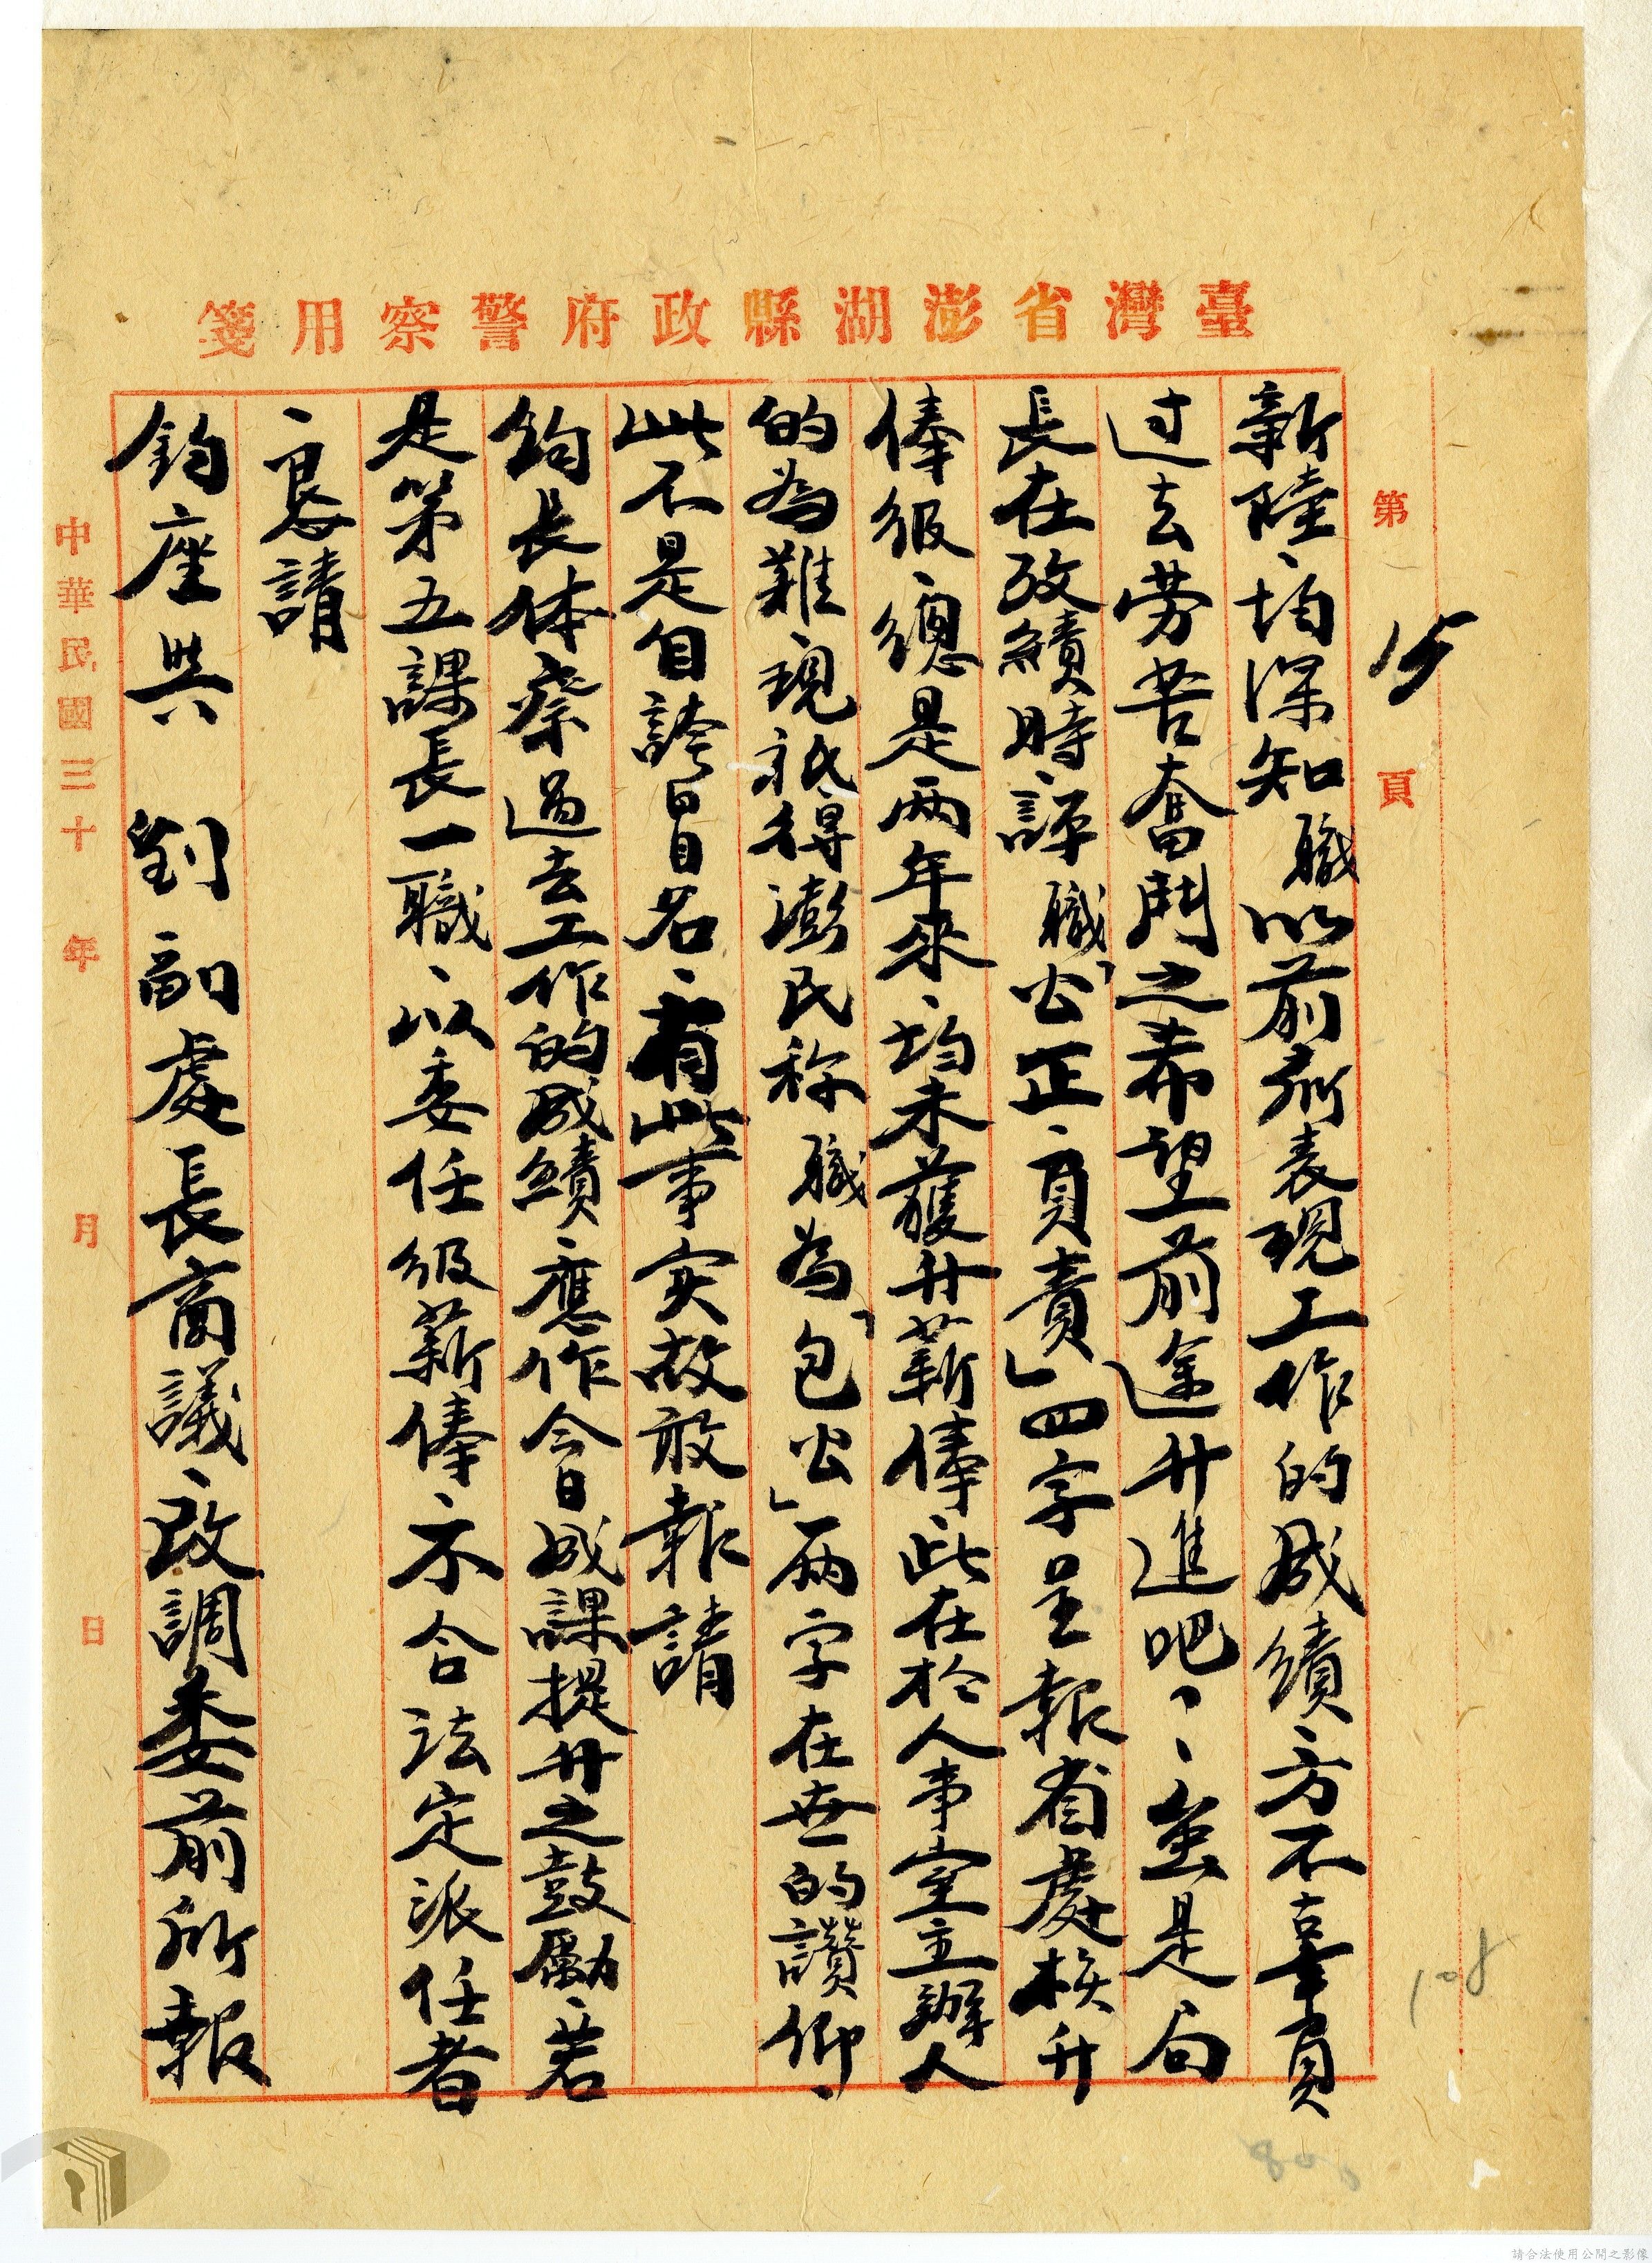 臺灣省澎湖縣政府警察用箋
第15頁
新陸、均深知職以前所表現工作的成績、方不辜負
过去劳苦奮鬥之希望前途升進吧、、虽是局
長在攷績時、評職「公正、負責」四字呈報省處核升
俸级、總是兩年來、均未獲升薪俸此在於人事室主辦人
的為難現祇得澎民称職為「包公」兩字在世的讚仰、
此不是自誇冒名、有此事实故敢報請
鈞長体察過去工作的成績應作今日成課提升之鼓勵、若
是第五課長一職、以委任级薪俸不合法定派任者
、懇請
鈞座與 劉副處長商議、改調委前所報
中華民國三十 年 月 日
108